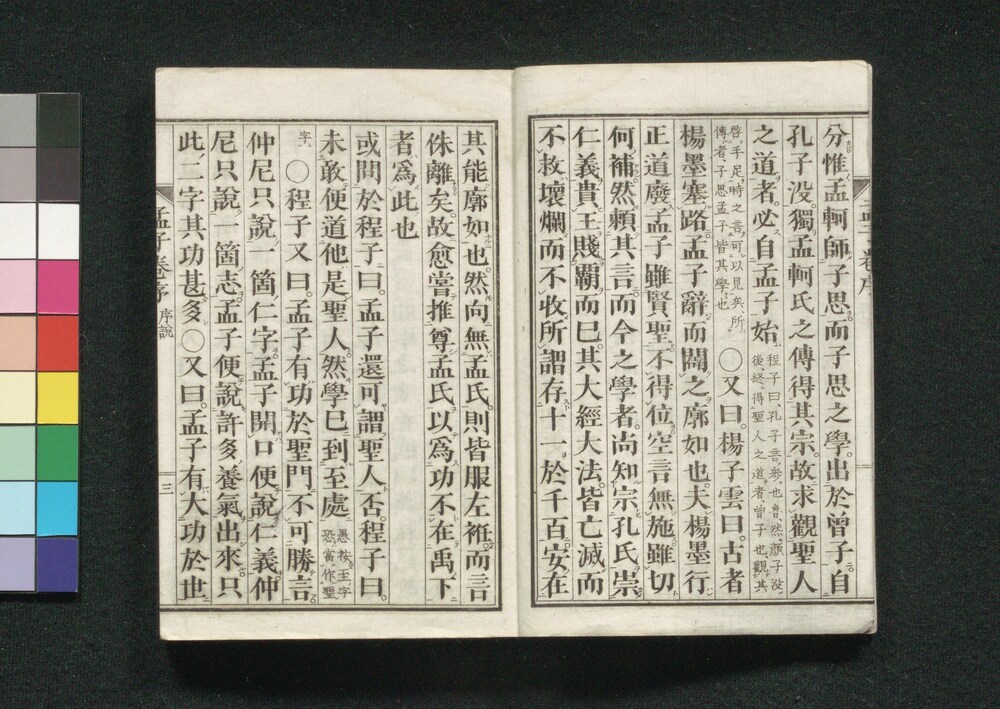 分惟孟軻師子思而子思之學出於曾子自
孔子沒獨孟軻氏之傳得其宗故求觀聖人
之道者必自孟子始程子曰孔子言參也魯然顏子沒後終得聖人之道者曾子也觀其
啓手足時之言可以見矣所傳者子思孟子皆其學也〇又曰楊子雲曰古者
楊墨塞路孟子辭而闢之廓如也夫楊墨行
正道廢孟子雖賢聖不得位空言無施雖切
何補然賴其言而今之學者尚知宗孔氏崇
仁義貴王賤霸而已其大經大法皆亡滅而
不救壞爛而不收所謂存十一於千百安在
其能廓如也然向無孟氏則皆服左衽而言
侏離矣故愈嘗推尊孟氏以爲功不在禹下
者爲此也
或問於程子曰孟子還可謂聖人否程子曰
未敢便道他是聖人然學已到至處愚按至字恐當作聖
字〇程子又曰孟子有功於聖門不可勝言
仲尼只說一箇仁字孟子開口便說仁義仲
尼只說一箇志孟子便說許多養氣出來只
此二字其功甚多〇又曰孟子有大功於世
孟子卷序 序說 三